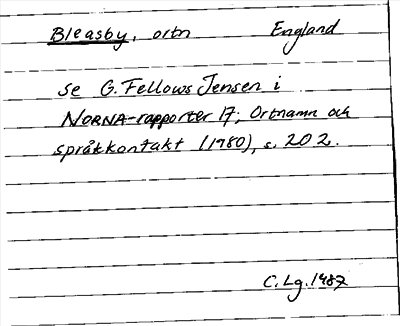 Bleasby, ortn England
se G. Fellows Jensen i
NORNA-rapporter 17; Ortnamn och
språkkontakt (1980), s. 202.
C. Lg. 1987